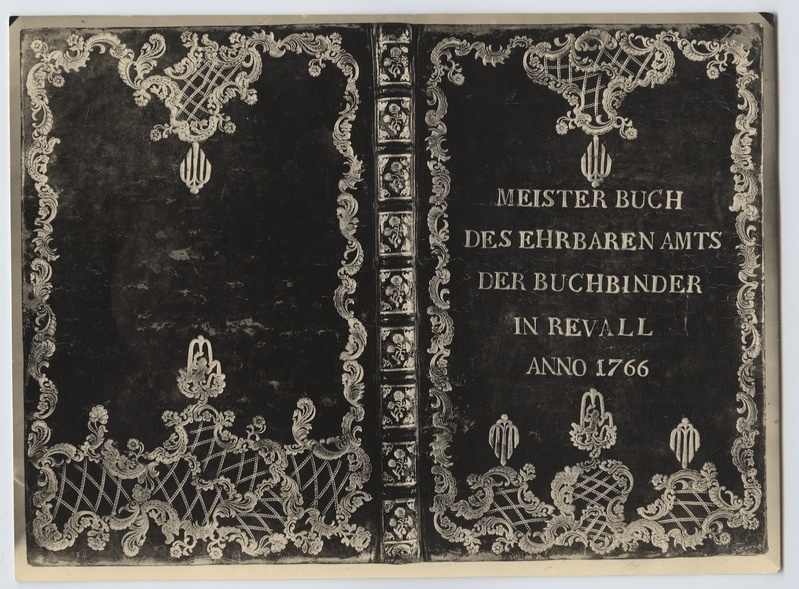 MEISTER BUCH
DES EHRBAREN AMTS
DER BUCHBINDER
IN REVALL
ANNO 1766